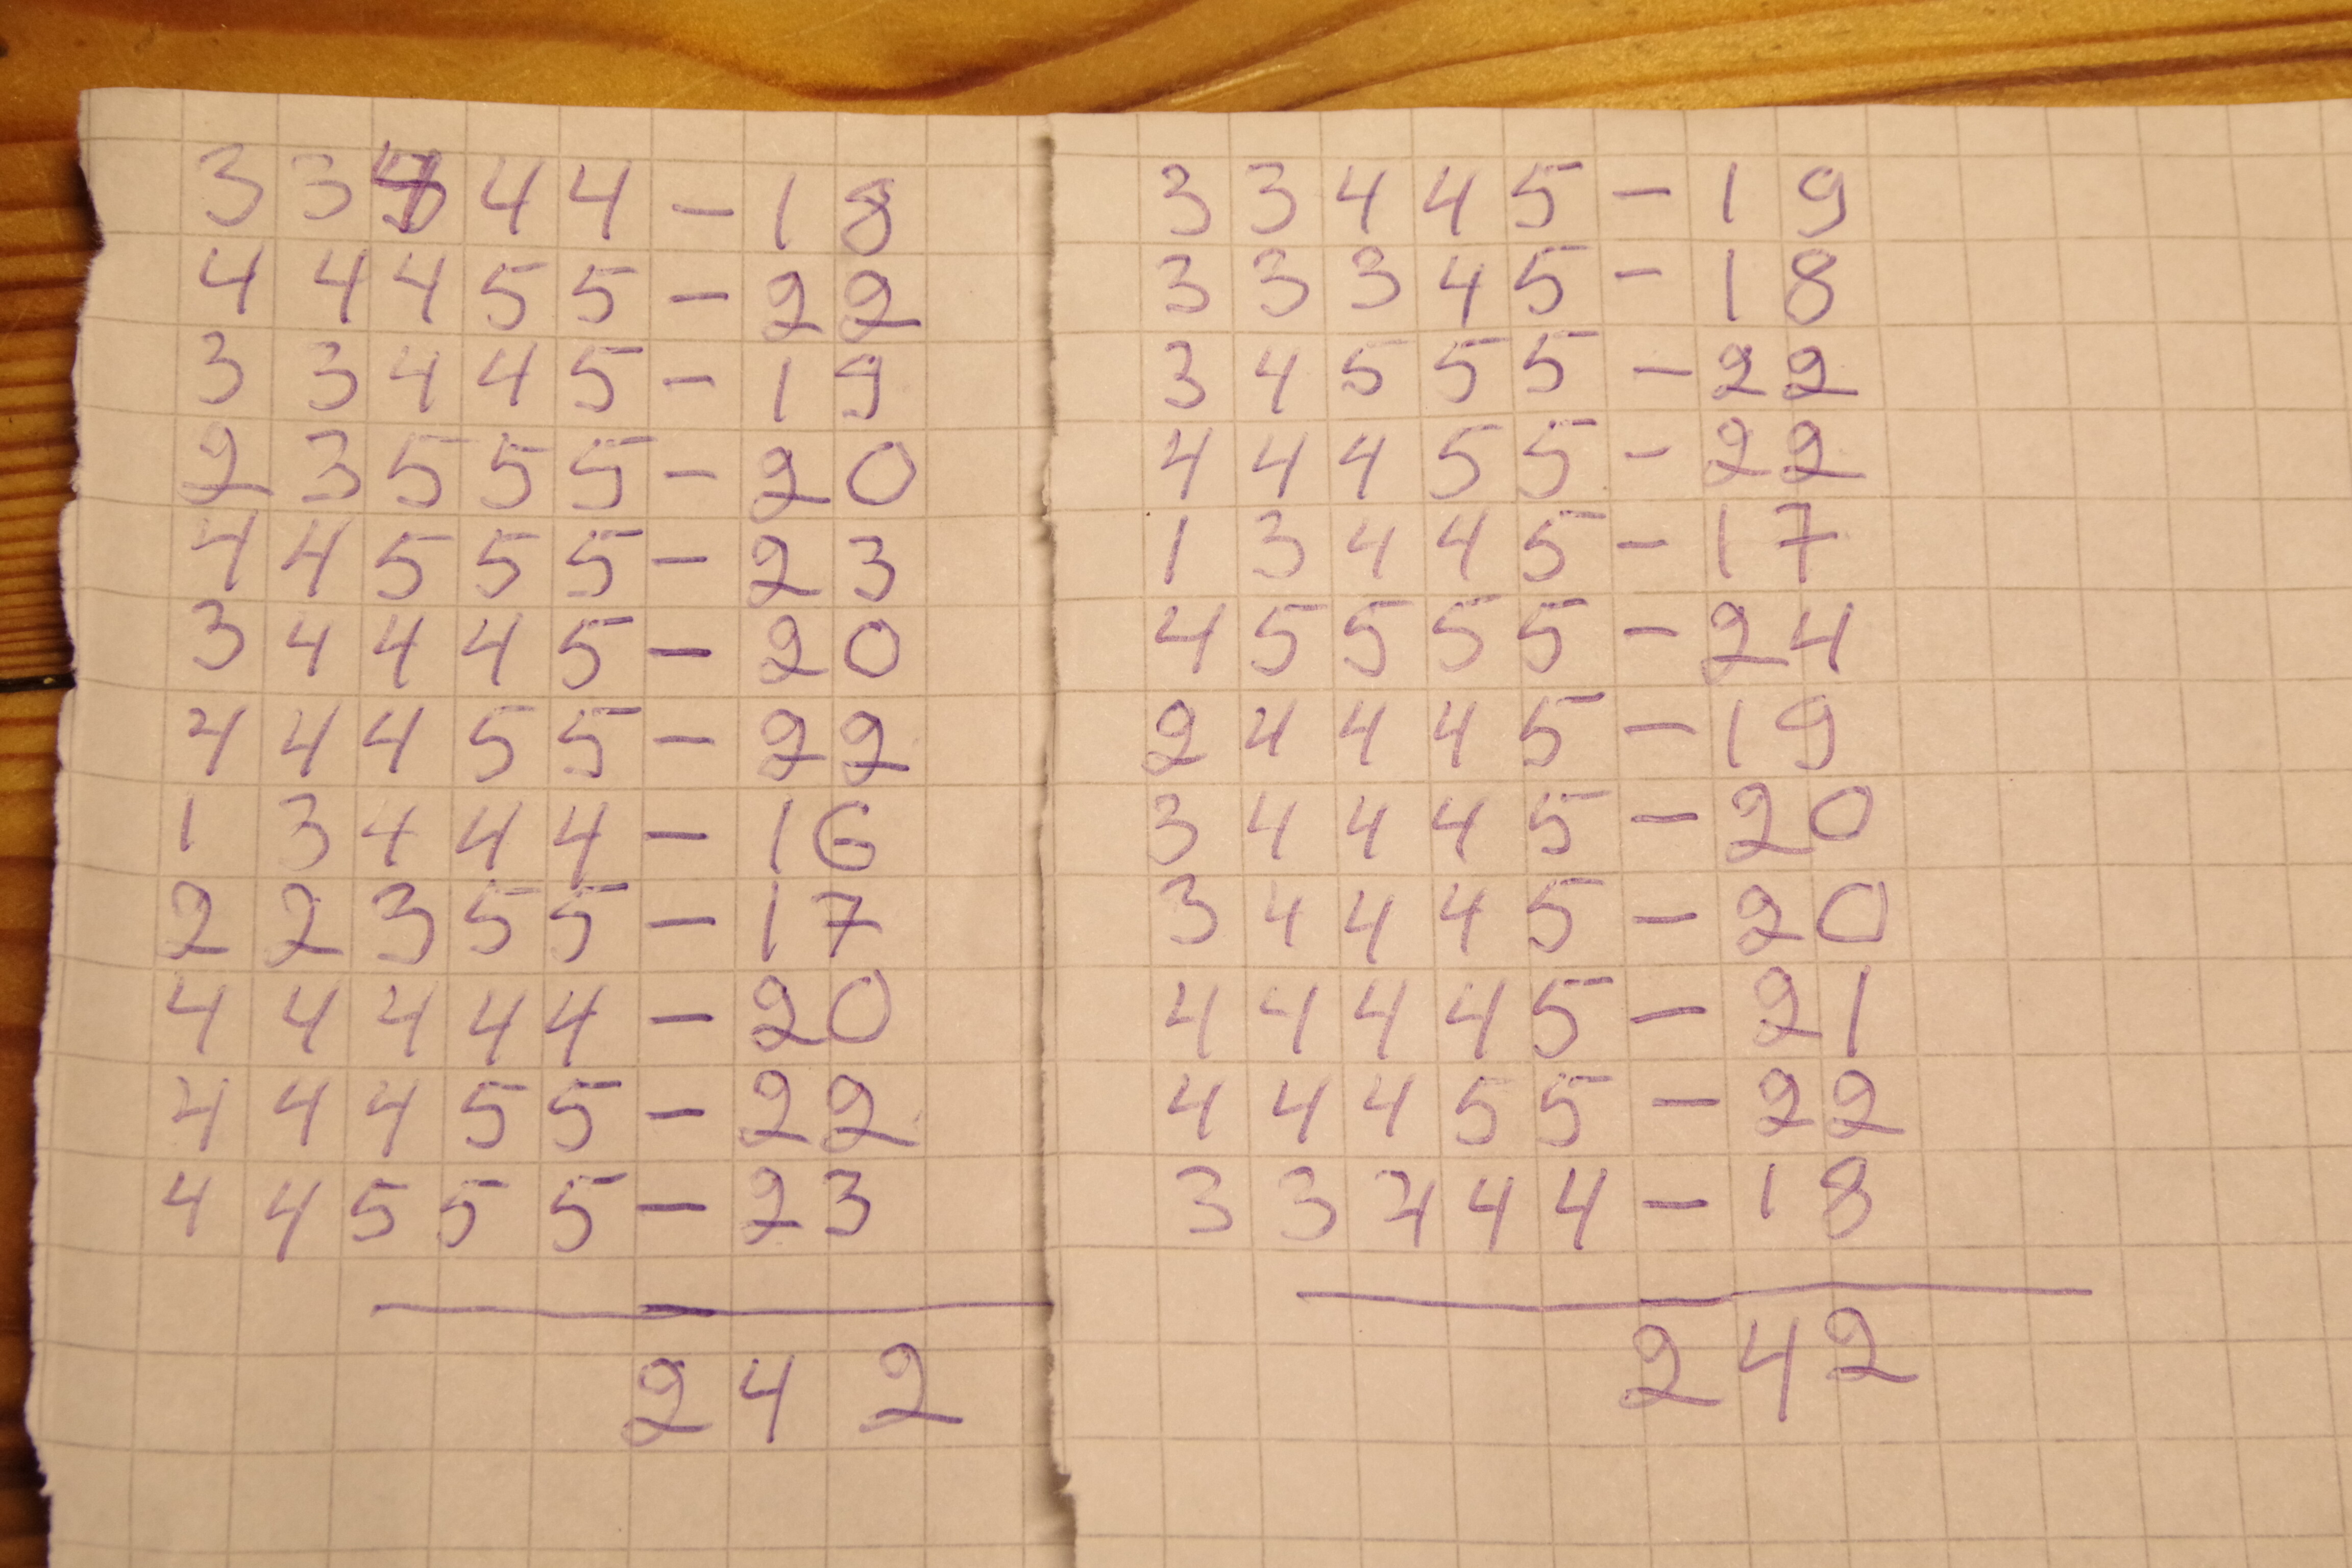 3 3 4 4 4 - 18
4 4 4 5 5 - 22
3 3 4 4 5 - 19
2 3 5 5 5 - 20
4 4 5 5 5 - 23
3 4 4 4 5 - 20
4 4 4 5 5 - 22
1 3 4 4 4 - 16
2 2 3 5 5 - 17
4 4 4 4 4 - 20
4 4 4 5 5 - 22
4 4 5 5 5 - 23
242
3 3 4 4 5 - 19
3 3 3 4 5 - 18
3 4 5 5 5 - 22
4 4 4 5 5 - 22
1 3 4 4 5 - 17
4 5 5 5 5 - 24
2 4 4 4 5 - 19
3 4 4 4 5 - 20
3 4 4 4 5 - 20
4 4 4 4 5 - 21
4 4 4 5 5 - 22
3 3 4 4 4 - 18
242